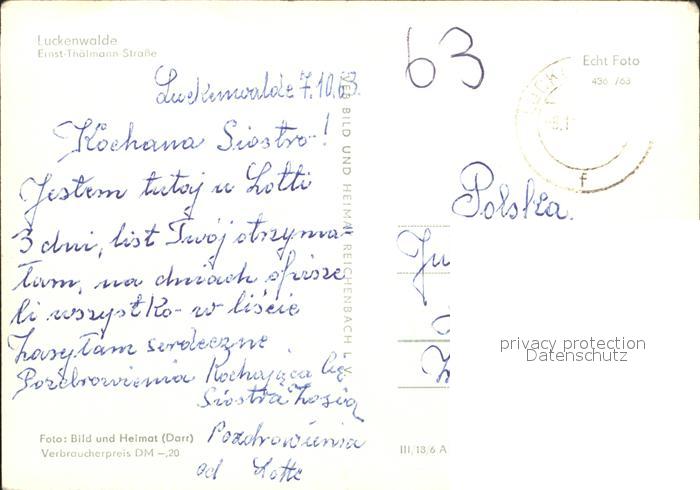 Luckenwalde
Ernst-Thälmann-Straße
Luckenwalde 7.10.63.
Kochana Siostro!
Jestem tutaj u Lotti
3 dni, list Twój otrzyma=
łam, na dniach opisze
li wszystko w liście
Zasyłam serdeczne
Pozdrowienia Kochająca Cię
Siostra Zosia
Pozdrowienia
od Lotte
Foto: Bild und Heimat (Darr)
Verbraucherpreis DM -,20
BILD UND HEIMAT REICHENBACH I. V.
63
Echt Foto
436 /63
f
Polska.
Ju
privacy protection
Datenschutz
III/13/6 A